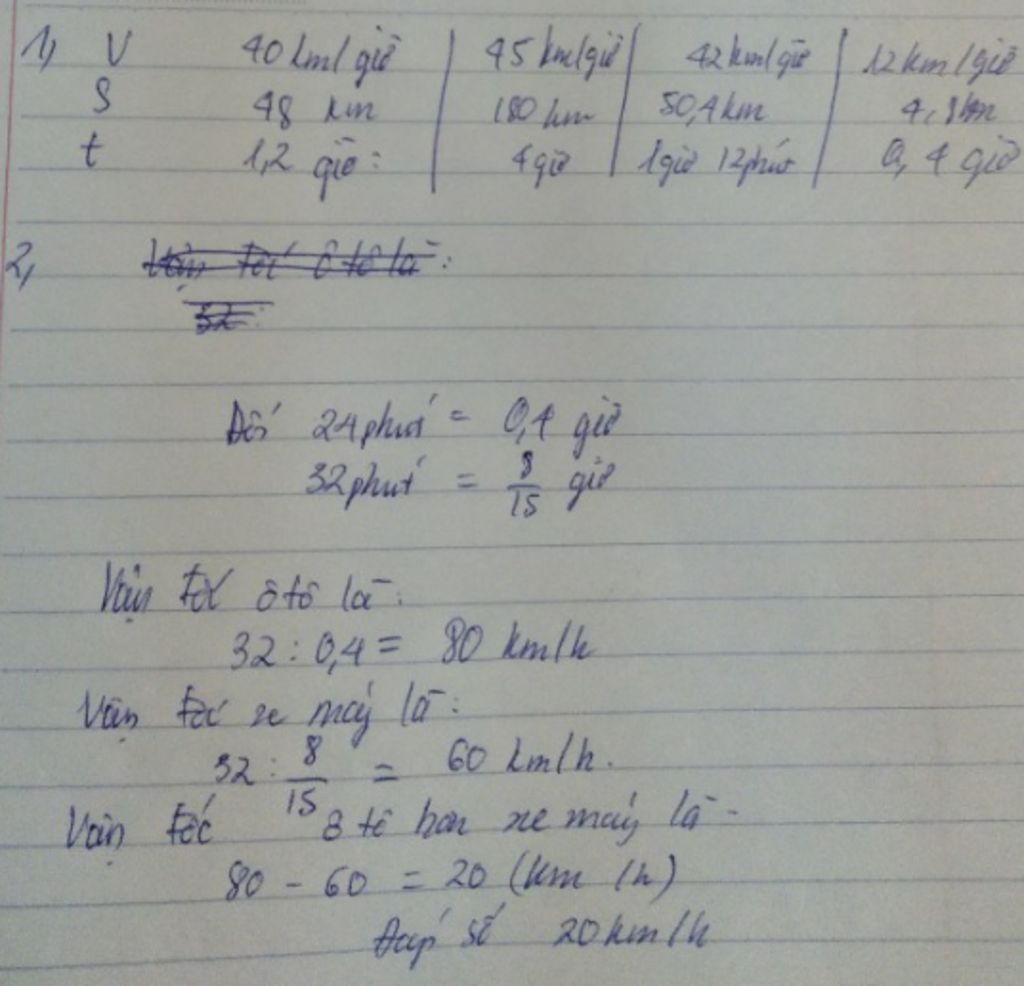 1, V 40 km/giờ | 45 km/giờ | 42 km/giờ | 12 km/giờ
S 48 km | 180 km | 50,4 km | 4,8 km
t 1,2 giờ: | 4 giờ | 1 giờ 12 phút | 0,4 giờ
2, Vận tốc ô tô là:
32:
Đổi 24 phút = 0,4 giờ
32 phút = 8/15 giờ
Vận tốc ô tô là:
32 : 0,4 = 80 km/h
Vận tốc xe máy là:
32 : 8/15 = 60 km/h.
Vận tốc ô tô hơn xe máy là
80 - 60 = 20 (km/h)
Đáp số 20 km/h